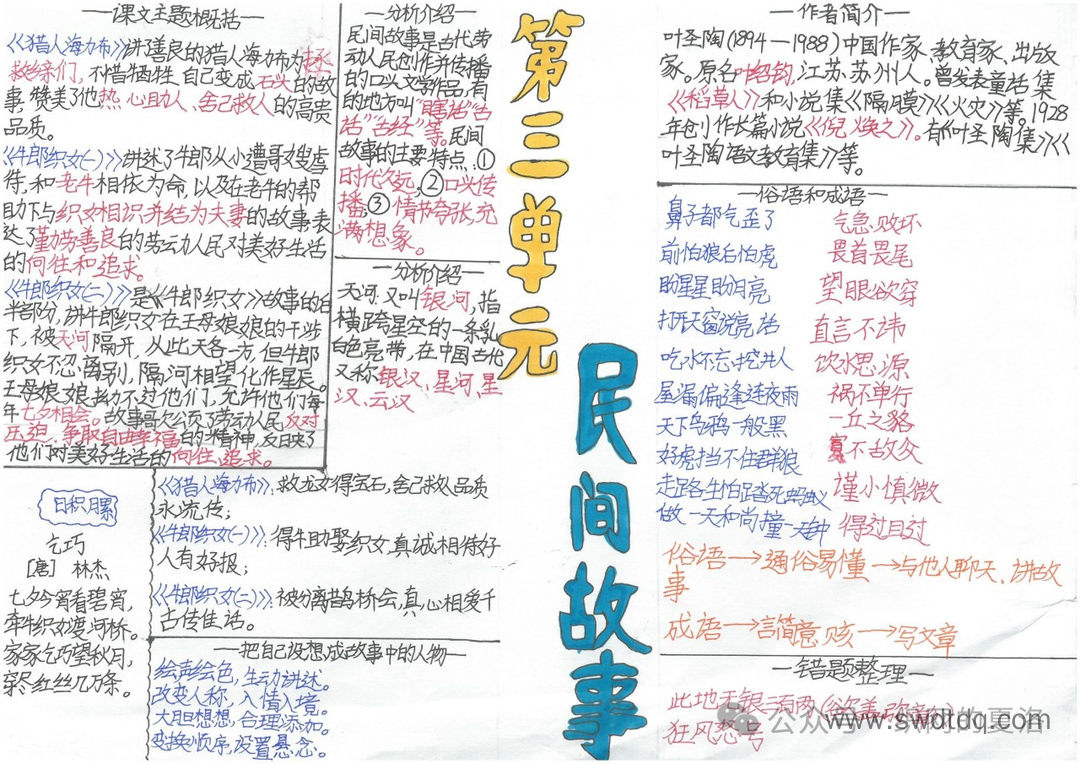 课文主题概括
《猎人海力布》讲了善良的猎人海力布为拯
救乡亲们,不惜牺牲自己变成石头的故
事,赞美了他热心助人、舍己救人的高贵
品质。
《牛郎织女(一)》讲述了牛郎从小遭哥嫂虐
待,和老牛相依为命,以及在老牛的帮
助下与织女相识并结为夫妻的故事表
达了勤劳善良的劳动人民对美好生活
的向往和追求。
《牛郎织女(二)》是《牛郎织女》故事的后
半部分,讲牛郎织女在王母娘娘的干涉
下,被天河隔开,从此天各一方,但牛郎
织女不忍离别,隔河相望化作星辰。
王母娘娘拗不过他们,允许他们每
年七夕相会。故事歌颂了劳动人民反对
压迫、争取自由幸福的精神,反映了
他们对美好生活的向往、追求。
分析介绍
民间故事是古代劳
动人民创作并传播
的口头文学作品,有
的地方叫"瞎话""古
话""古经"等。民间
故事的主要特点:①
时代久远,②口头传
播,③情节夸张,充
满想象。
分析介绍
天河又叫银河,指
横跨星空的一条乳
白色亮带,在中国古代
又称银汉、星河、星
汉、云汉
日积月累
乞巧
[唐] 林杰
七夕今宵看碧霄,
牵牛织女渡河桥。
家家乞巧望秋月,
穿尽红丝几万条。
《猎人海力布》:救龙女得宝石,舍己救人品质
永流传;
《牛郎织女(一)》:得牛助娶织女,真诚相待好
人有好报;
《牛郎织女(二)》:被分离鹊桥会,真心相爱千
古传佳话。
把自己设想成故事中的人物
绘声绘色,生动讲述。
改变人称,入情入境。
大胆想想,合理添加。
变换顺序,设置悬念。
第三单元
民间故事
作者简介
叶圣陶(1894—1988)中国作家、教育家、出版
家。原名叶绍钧,江苏、苏州人。曾发表童话集
《稻草人》和小说集《隔膜》《火灾》等。1928
年创作长篇小说《倪焕之》。有《叶圣陶集》《
叶圣陶语文教育集》等。
俗语和成语
鼻子都气歪了 气急败坏
前怕狼后怕虎 畏首畏尾
盼星星盼月亮 望眼欲穿
打开天窗说亮话 直言不讳
吃水不忘挖井人 饮水思源
屋漏偏逢连夜雨 祸不单行
天下乌鸦一般黑 一丘之貉
好虎挡不住群狼 寡不敌众
走路生怕踏死蚂蚁 谨小慎微
做一天和尚撞一天钟 得过且过
俗语→通俗易懂→与他人聊天、讲故
事
成语→言简意赅→写文章
错题整理
此地无银三百两
狂风怒号
公众号
的夏洛
www.swdtdq.com